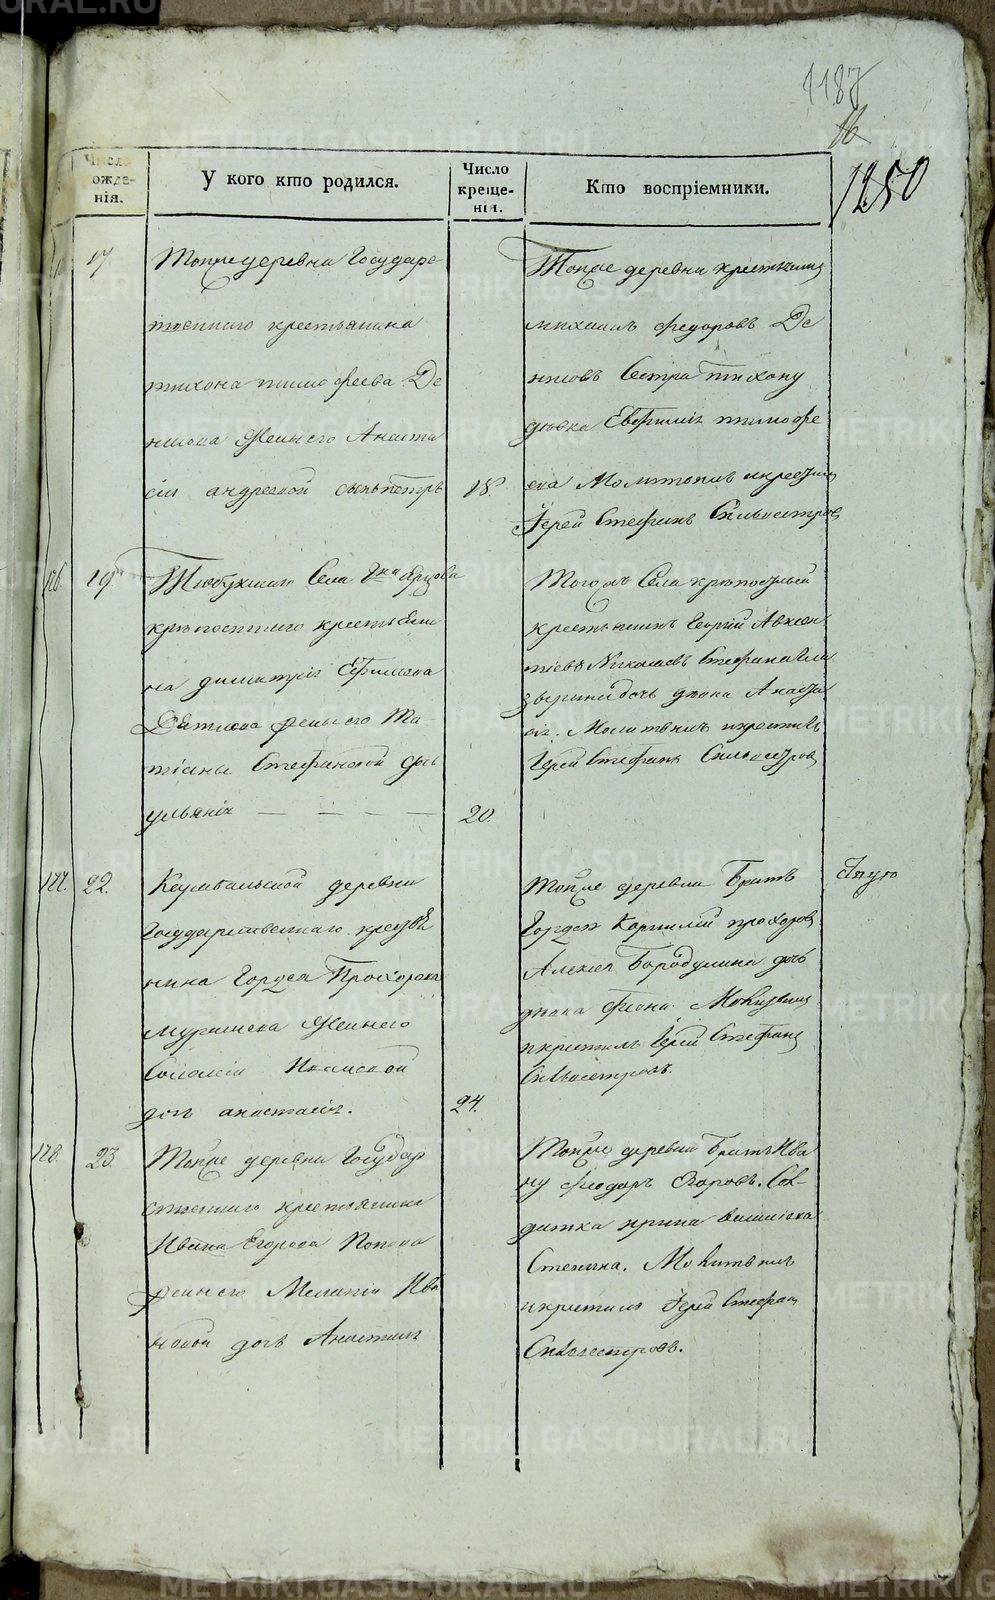 1187
16
1250
Число рожденія.
У кого кто родился.
Число крещенія.
Кто воспріемники.
17
Тойже деревни Государс
твеннаго крестьянина
тихона тимофеева Де
нисова жены его Анаста
сіи андреевой сынъ петръ
18.
Тойже деревни крестьянинъ
михаилъ федоровъ Де
нисовъ Сестра тихону
девка Евфимія тимофе
ева Молитвилъ и крестилъ
Іерей Стефанъ Сильвестровъ
126
19
Тюбукскаго Села Гна
крепостнаго крестьяни
на димитрія Ефимова
жены его Та
тіаны Стефановой дочь
ульянія
20.
Тогожъ Села крепостный
крестьянинъ Георгій Авксен
тіевъ Николаевъ Стефана
дочь девка Анаста
сія. Молитвилъ и крестилъ
Іерей Стефанъ Сильвестровъ
127.
22.
деревни
Государственнаго крестья
нина Гордея Прохорова
жены его
Соломеи
дочь анастасія.
24.
Тойже деревни Братъ
Гордея Корнилій прохоровъ
Алексея Бородулина дочь
девка Молитвилъ
и крестилъ Іерей Стефанъ
Сильвестровъ.
128.
23.
Тойже деревни Государ
ственнаго крестьянина
Ивана Егорова Попова
жены его Меланіи Ива
новой дочь Анастасія
Тойже деревни Братъ Ива
ну феодоръ Егоровъ. Сол-
датка ирина васильева
Степина. Молитвилъ
и крестилъ Іерей Стефанъ
Сильвестровъ.
METRIKI.GASO-URAL.RU